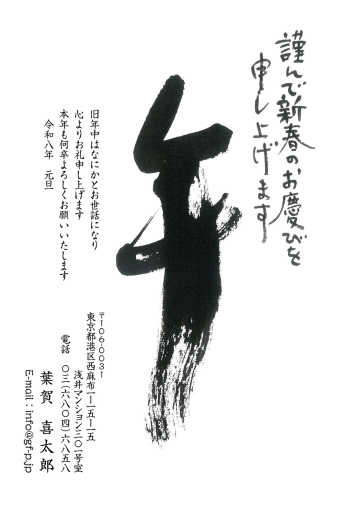 謹んで新春のお慶びを
申し上げます
午
旧年中はなにかとお世話になり
心よりお礼申し上げます
本年も何卒よろしくお願いいたします
令和八年 元旦
〒106-0031
東京都港区西麻布一-一五-一五
浅井マンション三〇一号室
電話 〇三(六八〇四)六八五八
葉賀 喜太郎
E-mail : info@gf-p.jp